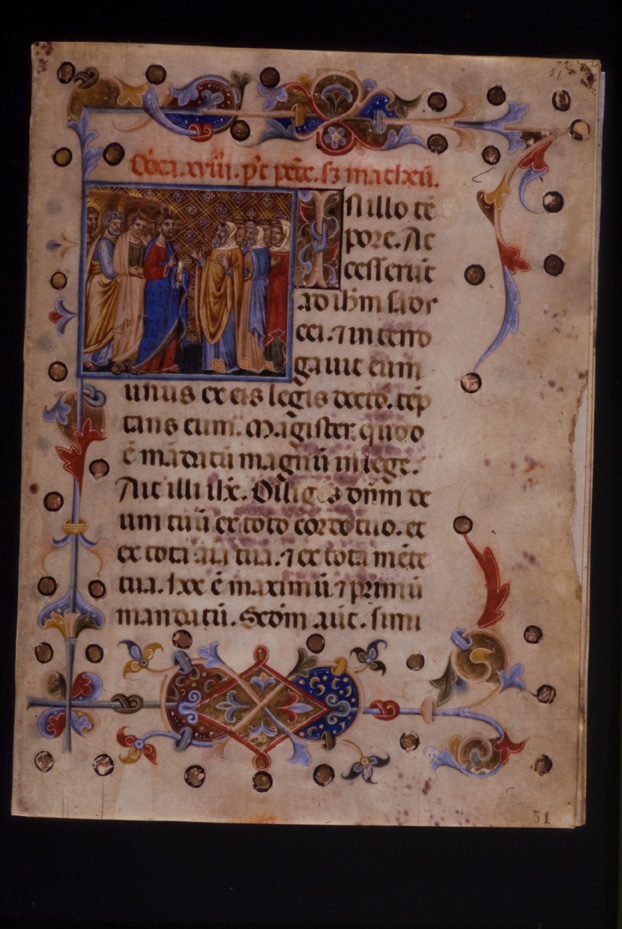 51
Dõica. xviii. p't pẽte. s3 macheũ.
In illo tẽ
pore. Ac
cesserũt
ad ihm̃ sadu
cei. ⁊ interro
gauit eum
unus ex eis legis doctõ. tẽp
tans eum. Magister. quod
ẽ mãdatũ magnũ in lege.
Ait illi ihc̃. Diliges dñm de
um tuũ ex toto corde tuo. et
ex tota aĩa tua. ⁊ ex tota mẽte
tua. hoc ẽ maximũ ⁊ primũ
mandatũ. Scdm̃ aut̃. simi
51